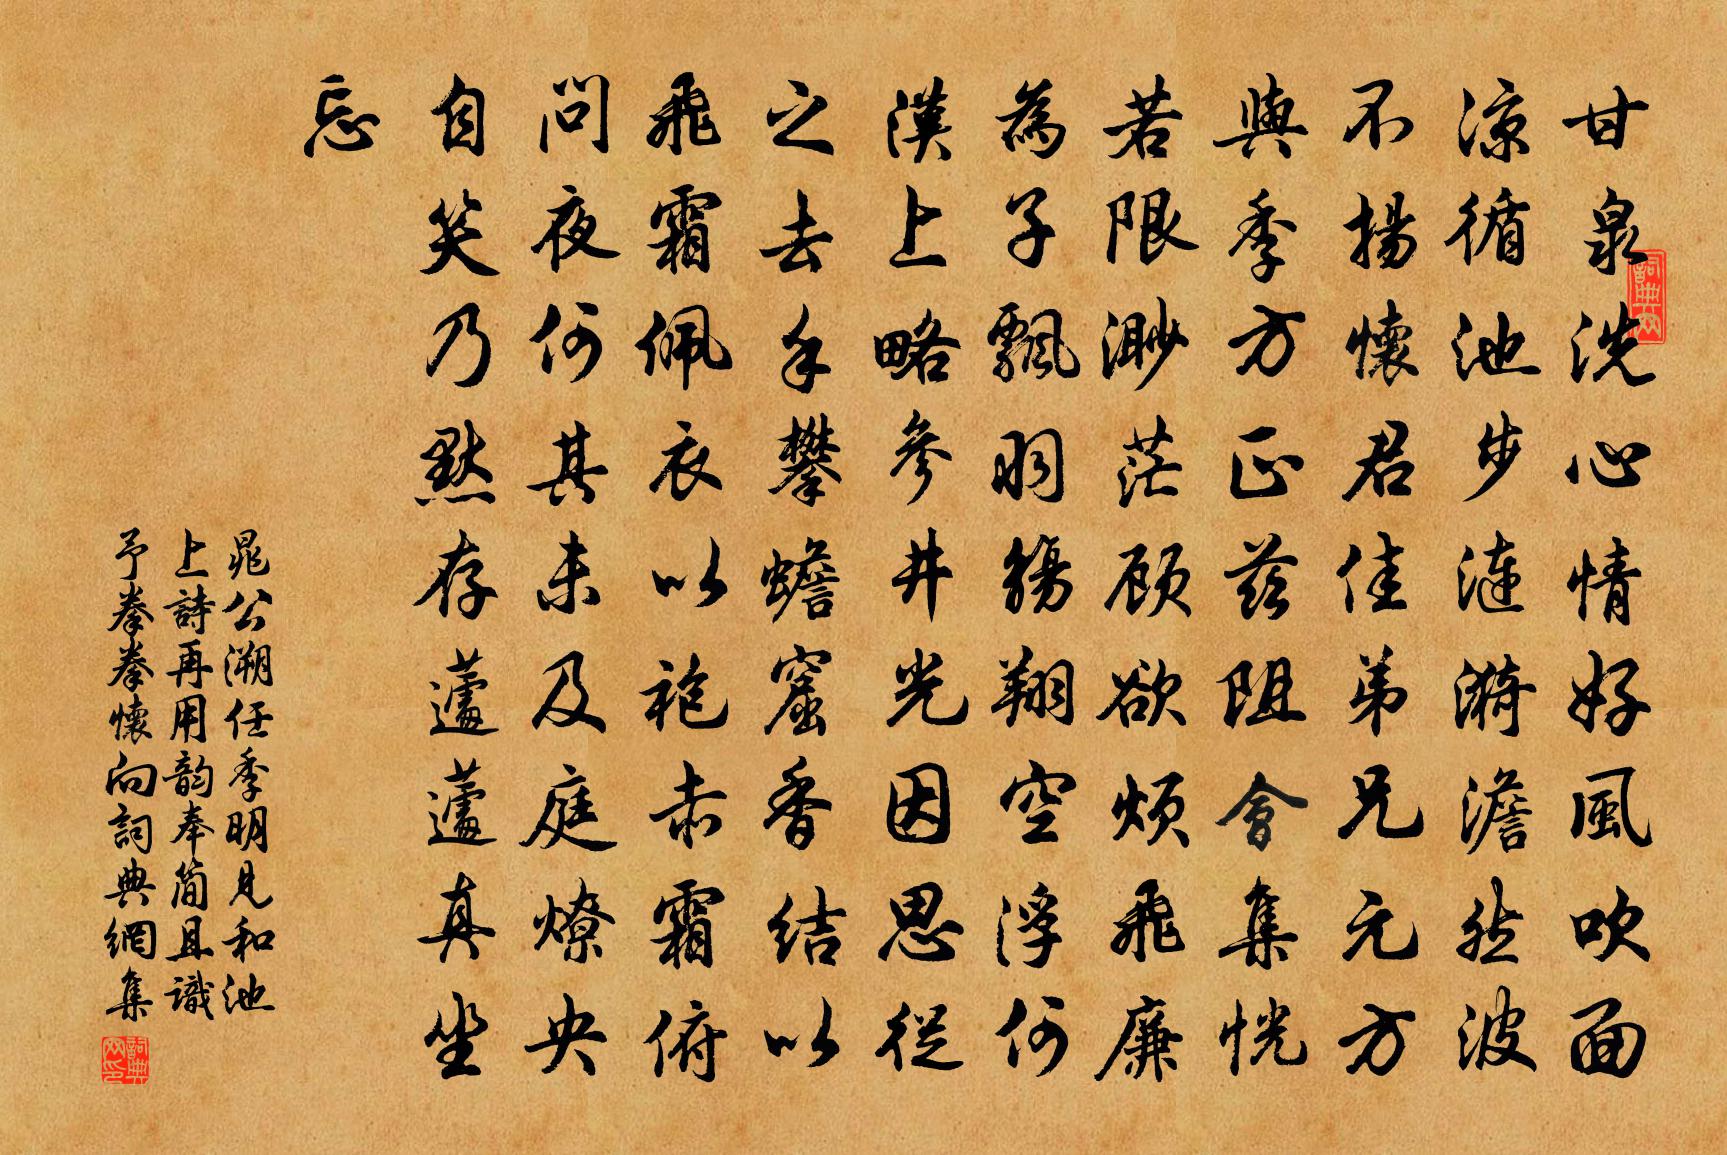 甘泉洗心情好風吹面
涼循池步漣漪澹然波
不揚懷君佳弟兄元方
與季方正茲阻會集恍
若限渺茫顧欲煩飛廉
為子飄羽觴翔空浮何
漢上略參井光因思從
之去手攀蟾窟香結以
飛霜佩衣以袍赤霜俯
問夜何其未及庭燎央
自笑乃默存蘧蘧真坐
忘
晁公溯任季明見和池
上詩再用韵奉簡且識
予拳拳懷向詞典網集
詞典网
詞典网印